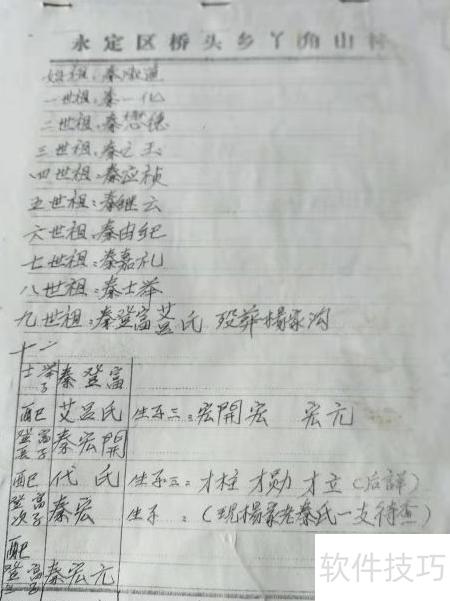 永定区桥头乡丫角山村
始祖：秦 道
一世祖：秦一化
二世祖：秦懋德
三世祖：秦之玉
四世祖：秦应祯
五世祖：秦继云
六世祖：秦由纪
七世祖：秦嘉礼
八世祖：秦士举
九世祖：秦登富 艾吕氏 殁葬杨家沟
十
士举子 秦登富
配 艾吕氏 生子三：宏開 宏 宏元
登富长子 秦宏開
配 代氏 生子三：才柱 才勋 才立（后詳）
登富次子 秦宏 生子：（现杨家老秦氏一支待查）
配
登富三子 秦宏元
软件技巧